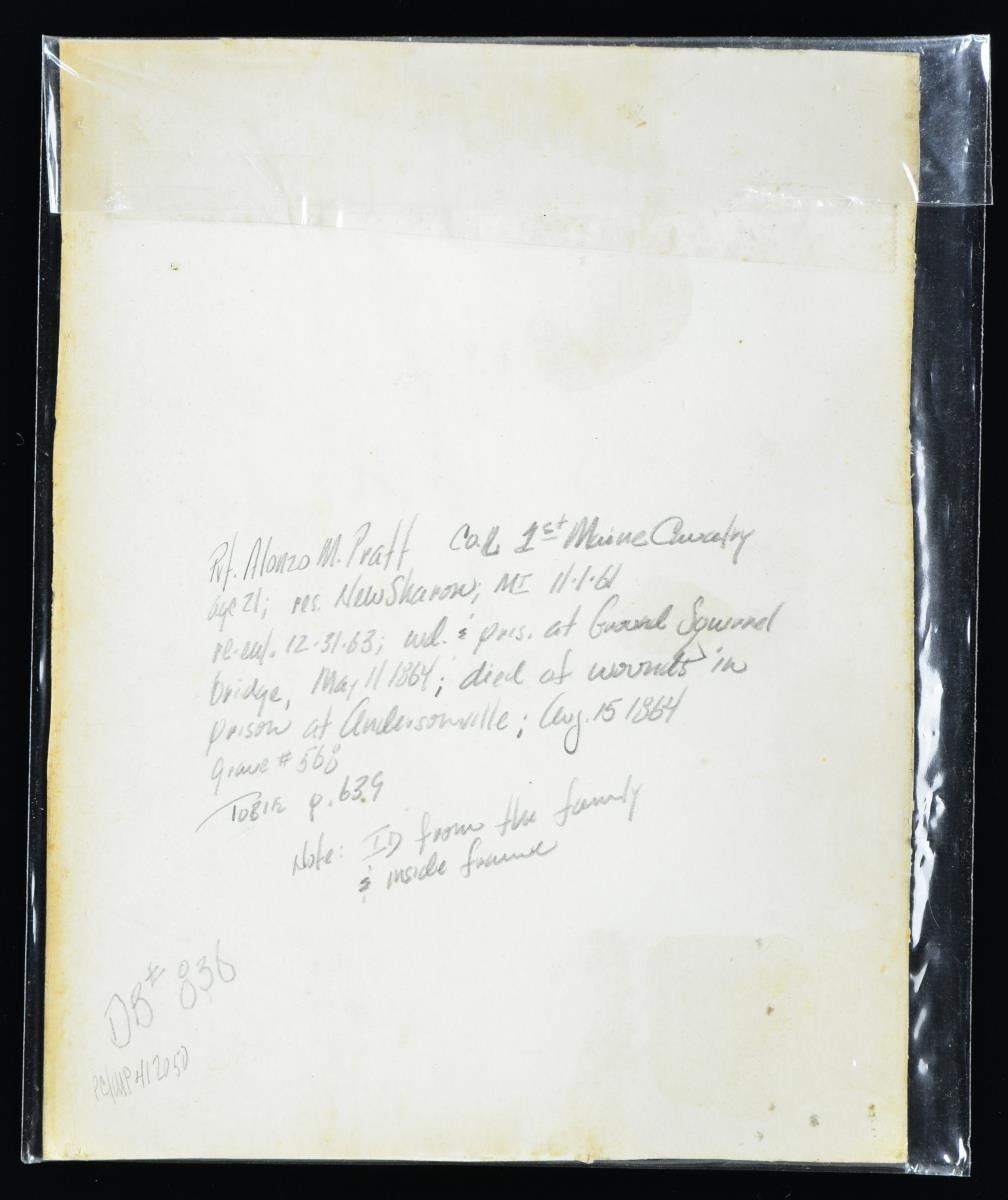 Pvt. Alonzo M. Pratt Co. L 1st Maine Cavalry
age 21; res. New Sharon; MI 11.1.61
re-enl. 12.31.63; wd. & pris. at Ground Squirrel
bridge, May 11 1864; died of wounds in
prison at Andersonville; Aug. 15 1864
grave # 568
TOBIE p. 639
Note: ID from the family
& inside frame
DB# 836
PC/MP412050